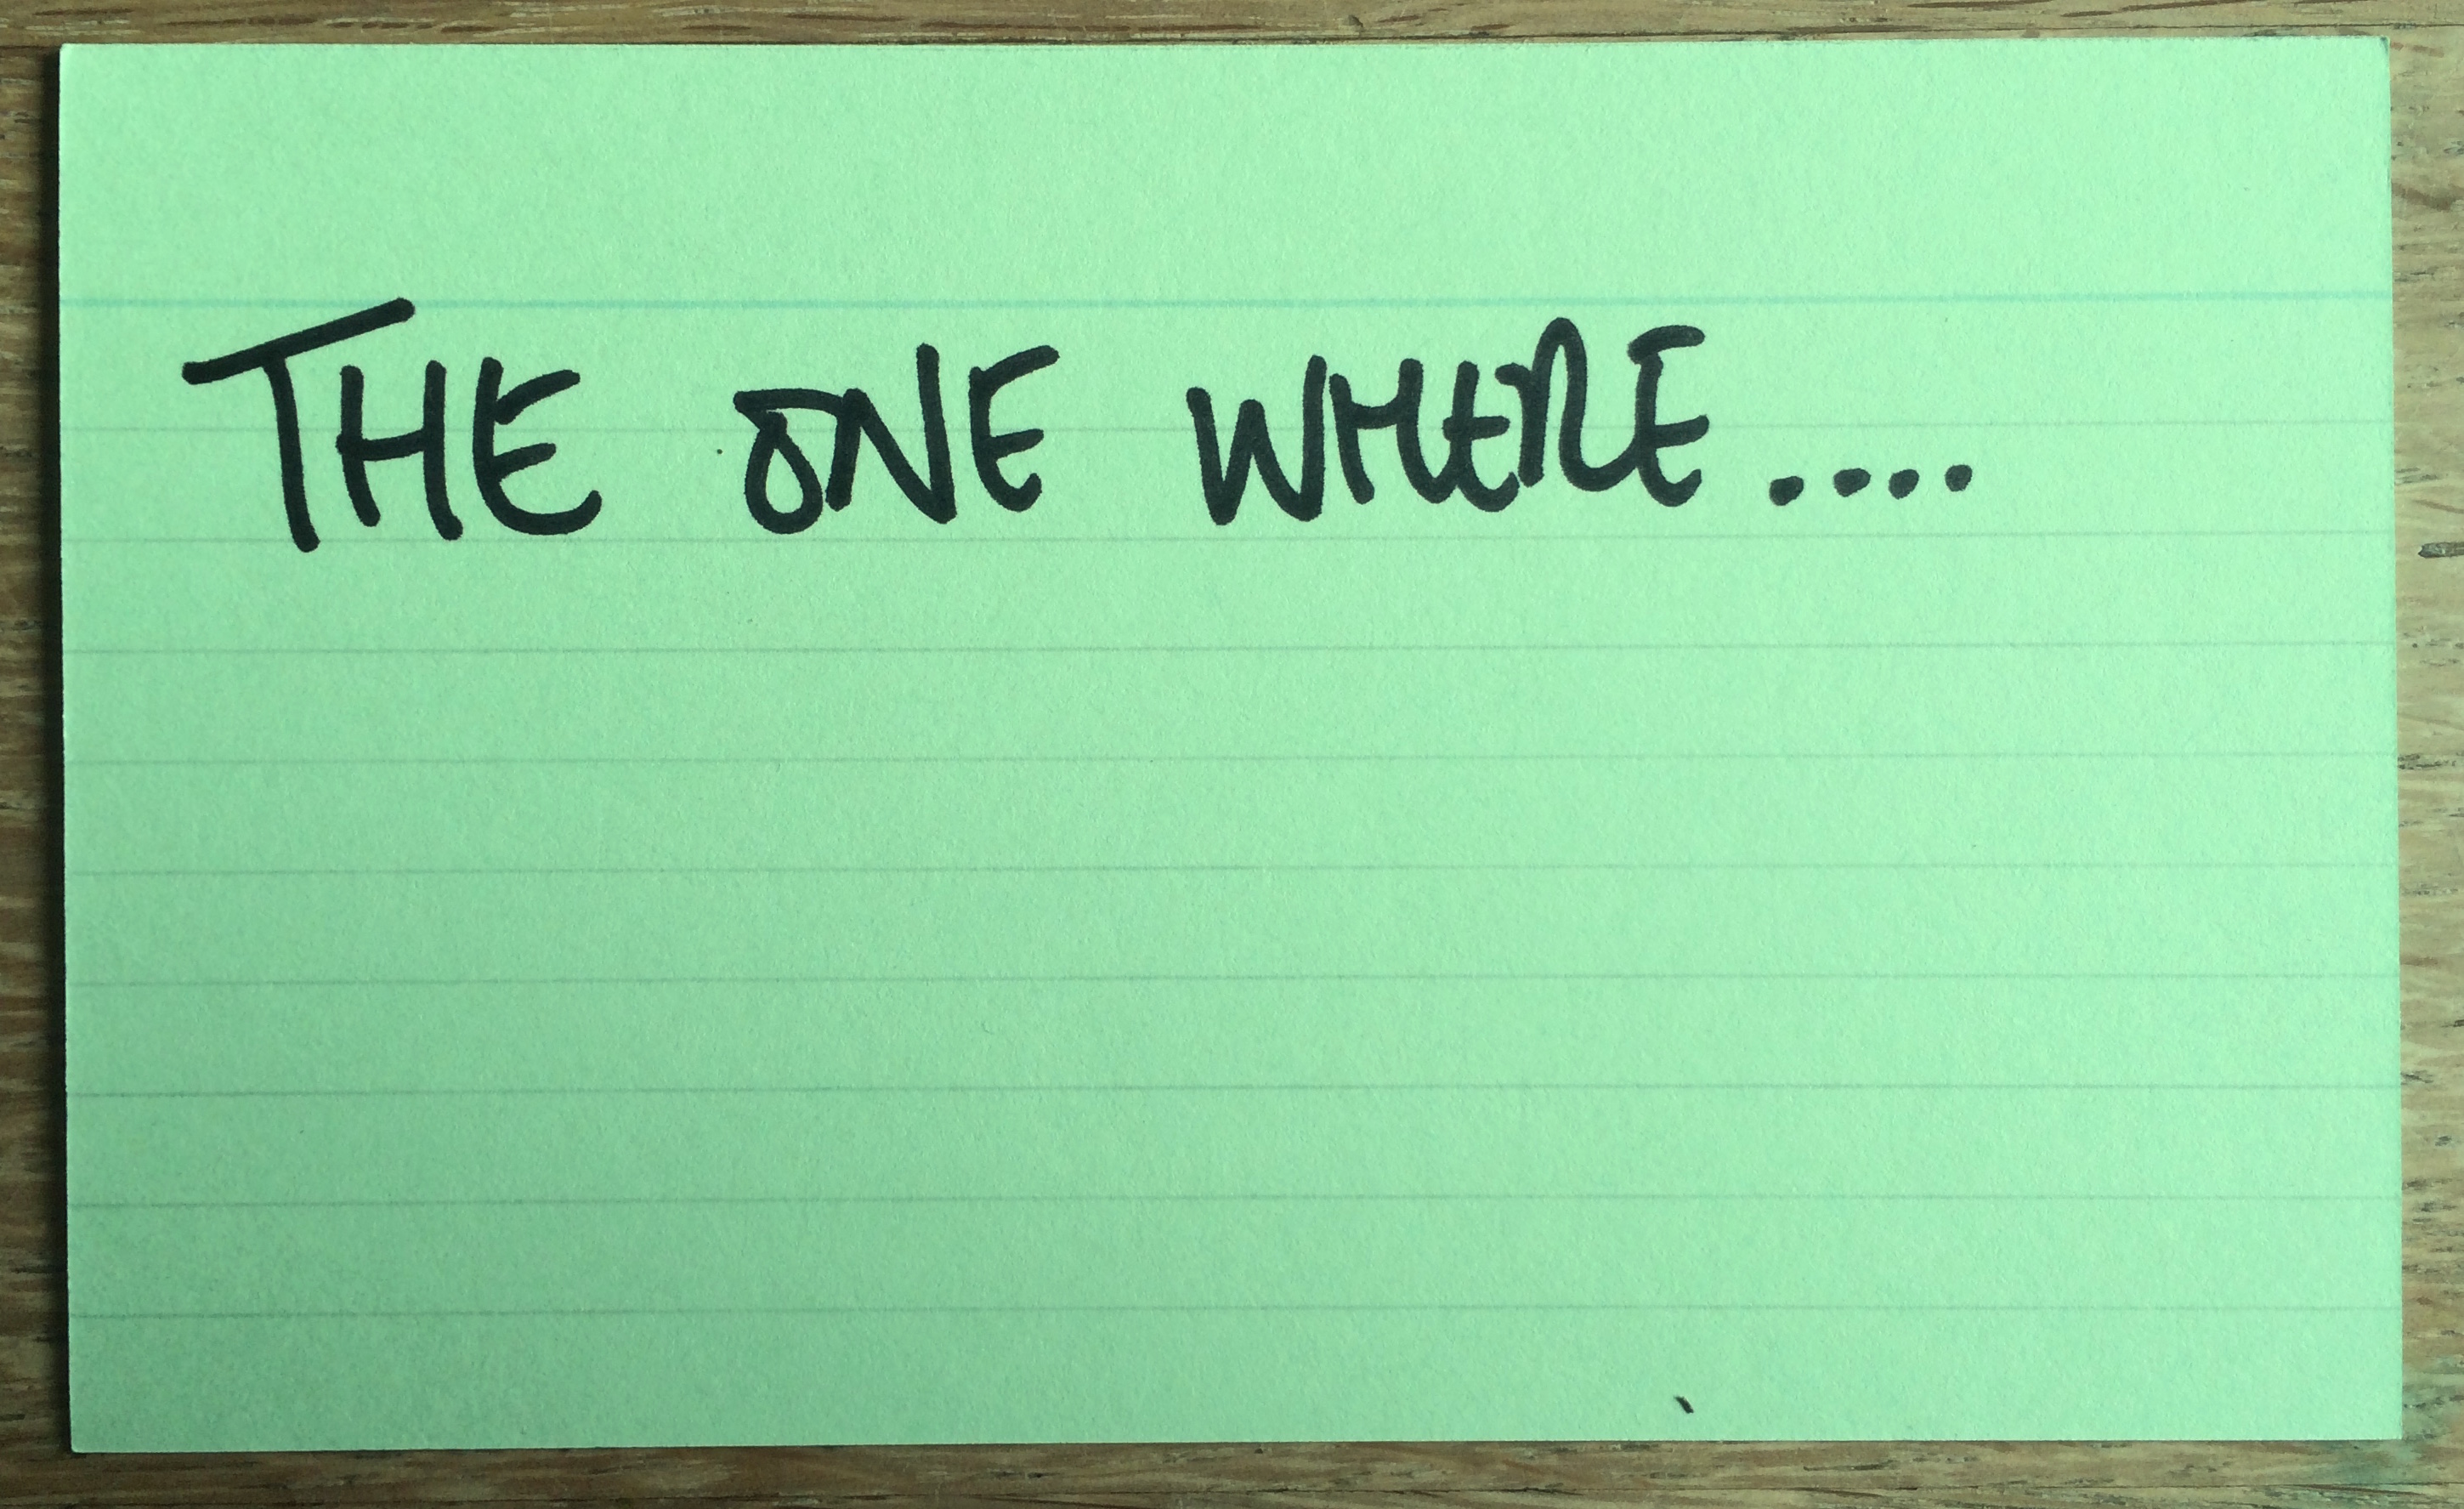 THE ONE WHERE....